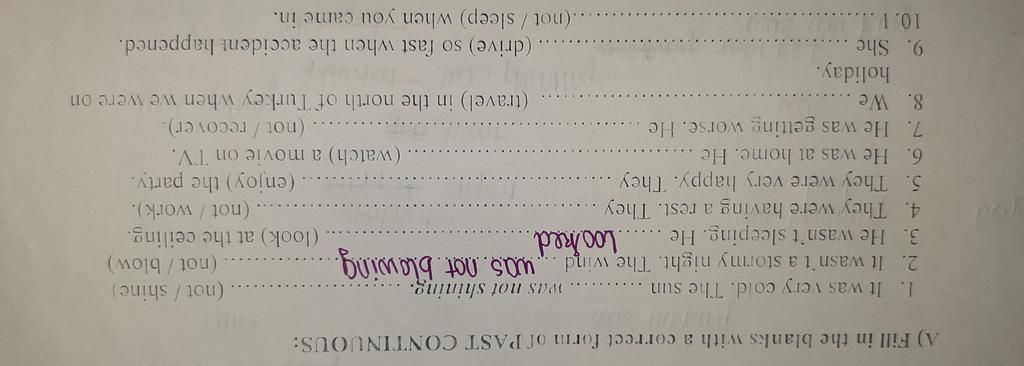 A) Fill in the blanks with a correct form of PAST CONTINUOUS:
1. It was very cold. The sun .......... was not shining. .......................... (not / shine)
2. It wasn't a stormy night. The wind ... was not blowing .................. (not / blow)
3. He wasn't sleeping. He ...... Looked .............................. (look) at the ceiling.
4. They were having a rest. They ................................................ (not / work).
5. They were very happy. They ............................................ (enjoy) the party.
6. He was at home. He ........................................ (watch) a movie on TV.
7. He was getting worse. He ................................................ (not / recover).
8. We ................................................ (travel) in the north of Turkey when we were on
holiday.
9. She ................................................ (drive) so fast when the accident happened.
10. I ................................................ (not / sleep) when you came in.